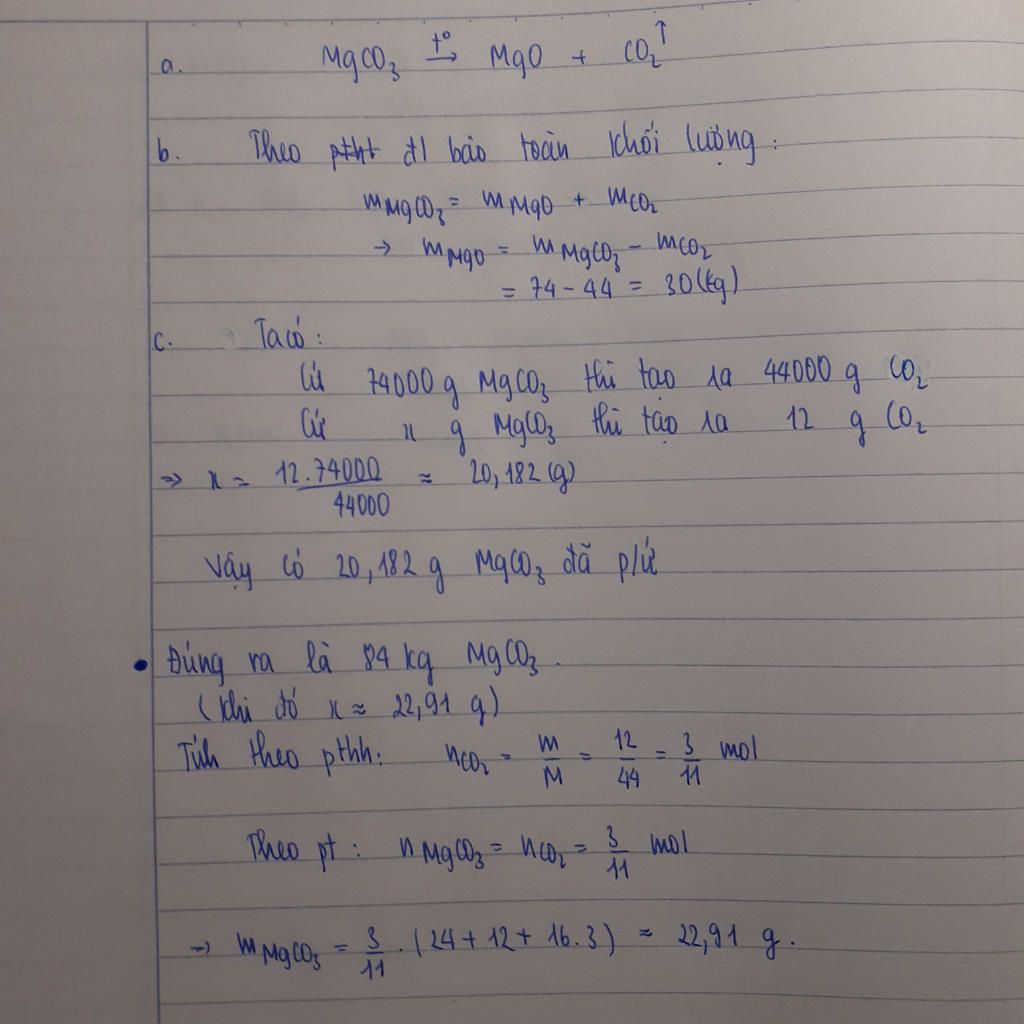 a. MgCO₃ —t°→ MgO + CO₂↑
b. Theo ptht đl bảo toàn khối lượng :
mMgCO₃ = mMgO + mCO₂
→ mMgO = mMgCO₃ - mCO₂
= 74 - 44 = 30 (kg)
c. Ta có :
Cứ 74000 g MgCO₃ thì tạo ra 44000 g CO₂
Cứ x g MgCO₃ thì tạo ra 12 g CO₂
⇒ x = 12.74000 / 44000 ≈ 20,182 (g)
Vậy có 20,182 g MgCO₃ đã p/ứ
• Đúng ra là 84 kg MgCO₃.
(khi đó x ≈ 22,91 g)
Tính theo pthh: nCO₂ = m/M = 12/44 = 3/11 mol
Theo pt : nMgCO₃ = nCO₂ = 3/11 mol
→ mMgCO₃ = 3/11 . (24 + 12 + 16.3) ≈ 22,91 g.